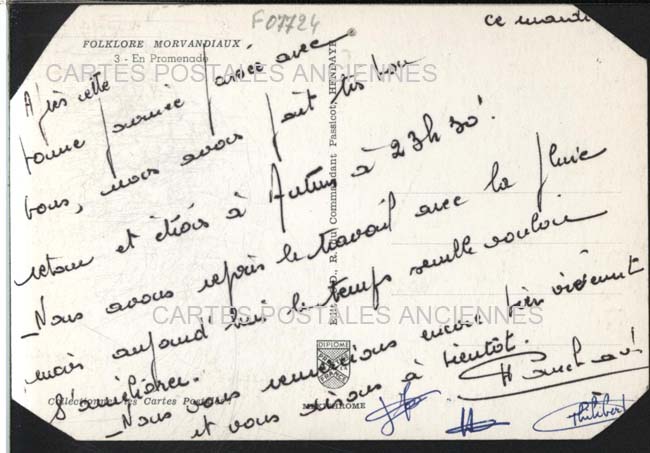 F 07724
ce mardi
FOLKLORE MORVANDIAUX
3 - En Promenade
CARTES POSTALES ANCIENNES
Après cette
bonne journée passée avec
vous, nous avons fait très bon
retour et étions à Autun à 23h30'.
- Nous avons repris le travail avec la pluie
mais aujourd'hui le temps semble vouloir
s'améliorer.
- Nous vous remercions encore bien vivement
et vous disons à bientôt.
Philibert
CARTES POSTALES ANCIENNES
R. du Commandant Passicot, HENDAYE
DIPLOME
FRANCE
Collectionnez les Cartes Postales